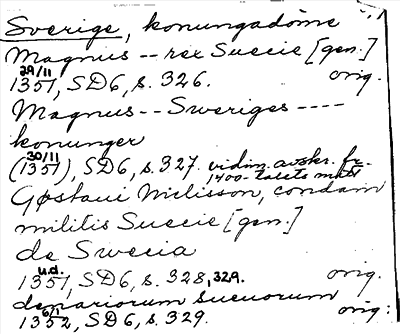 Sverige, konungadöme
Magnus -- rex Suecie [gen.]
29/11
1351, SD6, s. 326. orig.
Magnus -- Sweriges ----
konunger
30/11
(1351), SD6, s. 327. vidim. avskr. fr.
1400-talets mitt
Gøstaui Niclisson, condam
militis Suecie [gen.]
de Swecia
u.d.
1351, SD6, s. 328, 329. orig.
denariorum sueuorum
6/1
1352, SD6, s. 329. orig.